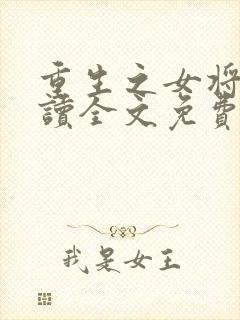 重生之女将
讀全文免費
我是女王